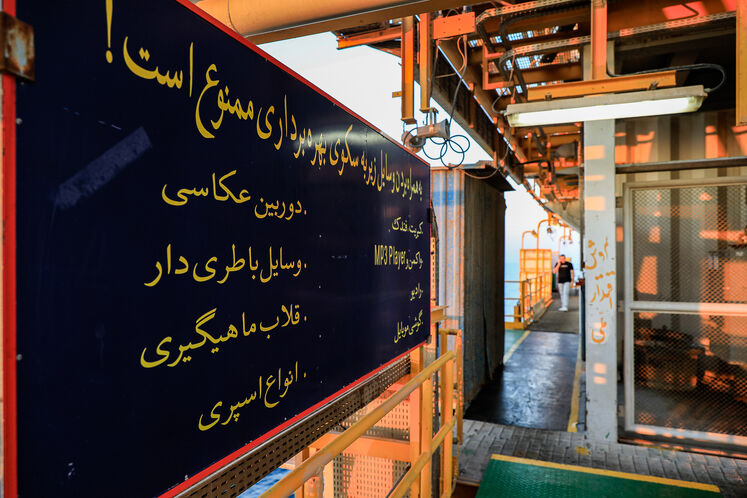 به همراه بردن وسایل زیر به سکوی بهره برداری ممنوع است !
کبریت فندک
واکمن و MP3 Player
رادیو
گوشی موبایل
دوربین عکاسی
وسایل باطری دار
قلاب ماهیگیری
انواع اسپری